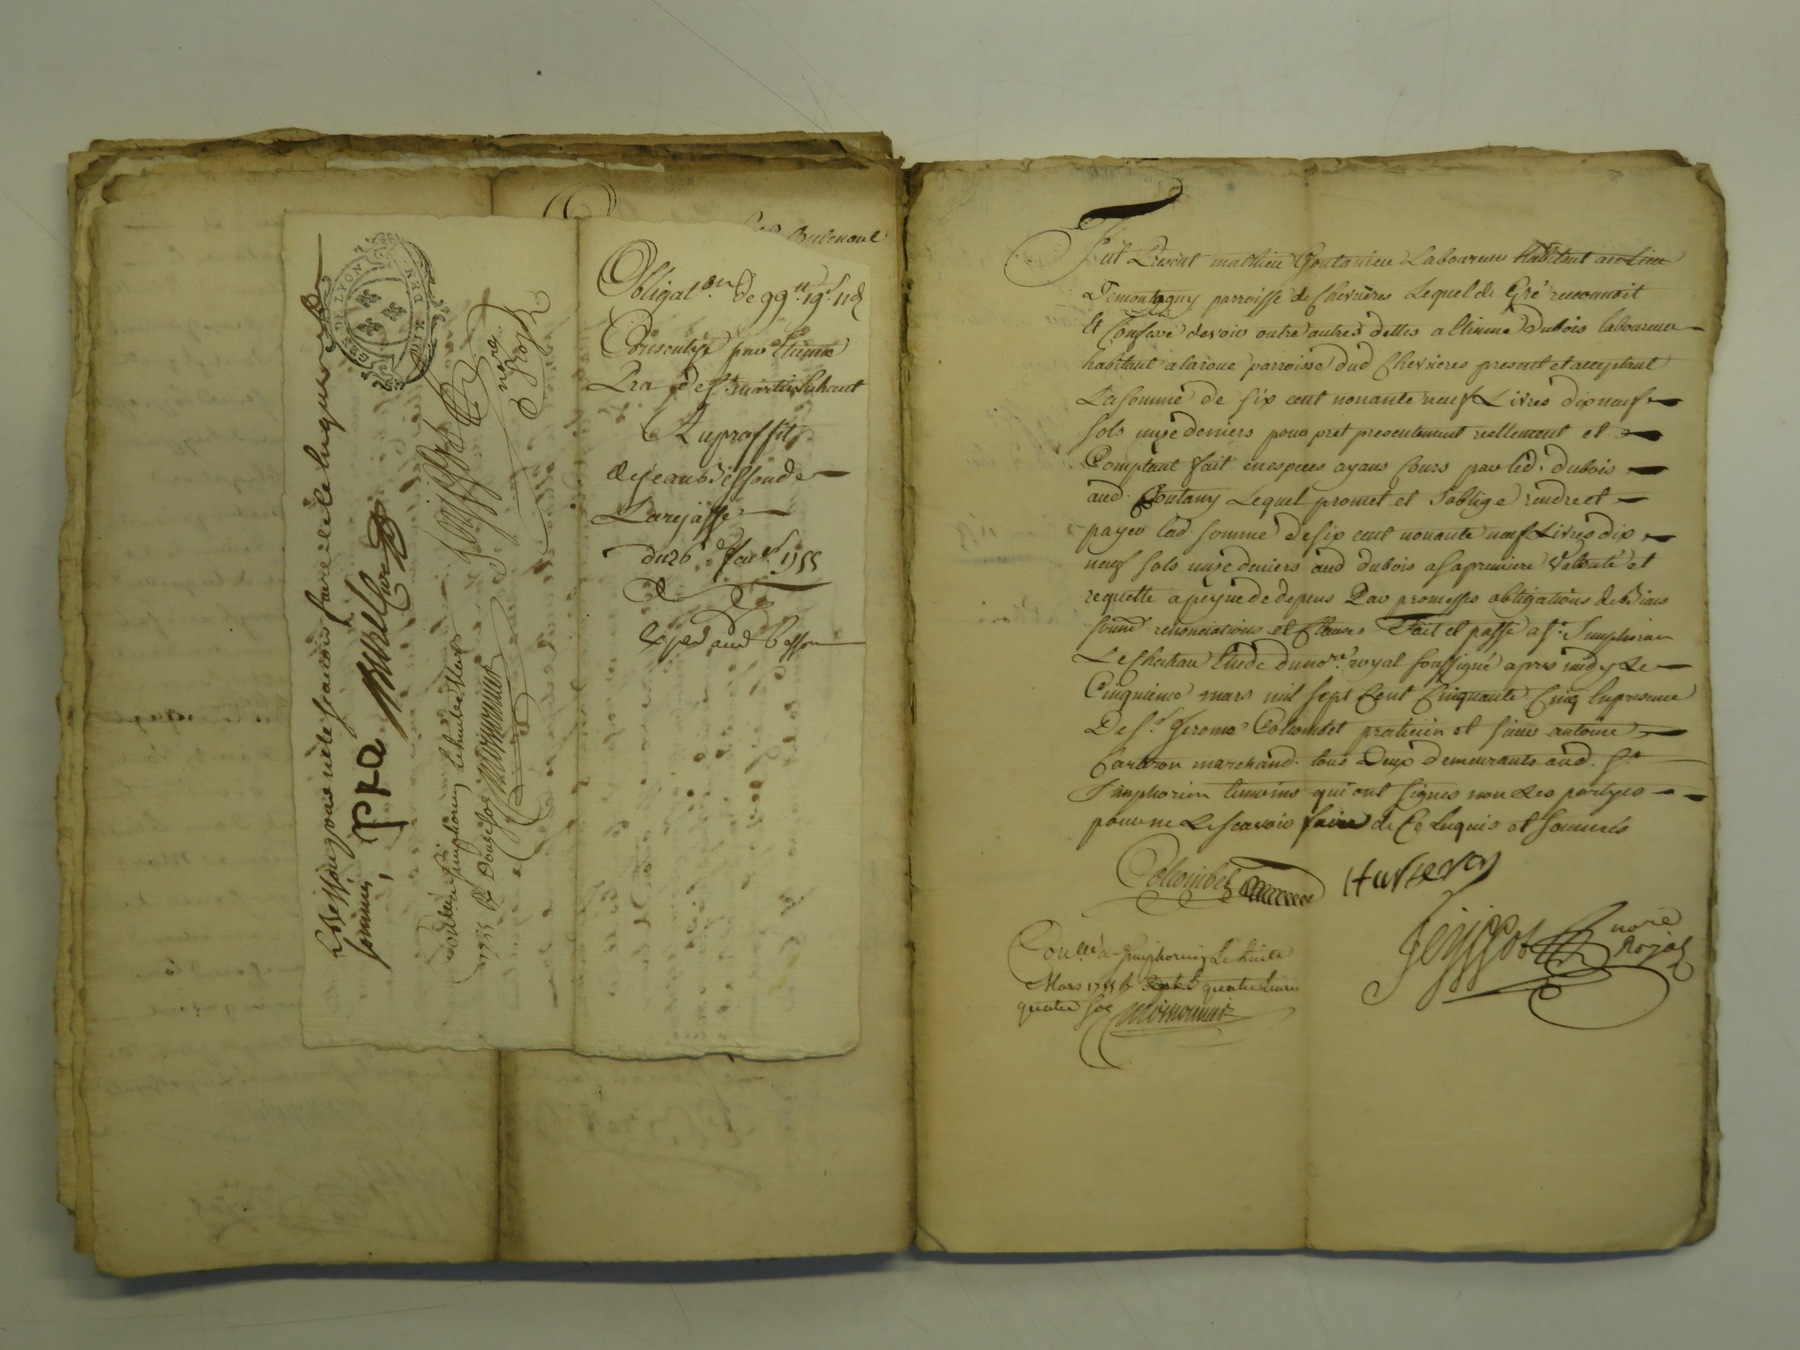 Obligat.on de 99tt 19s 11d
Consentye par Etienne
Pra de St Martin
Au proffit
de jean Besson de
Larejasse
du 26e 1755
exped aud besson
Lebesson pour ne le scavoir faire de ce enquis et
sommé
pra
notre
Royal
1755
St simphorien le huite Mars
Fut Present mathieu Goutanieu Laboureur habitant au Lieu
De montagny parroisse de Chevrières Lequel de Gré reconnoit
Et Confesse devoir outre autres dettes a Etienne Dubois laboureur
habitant a laroue parroisse dud Chevrieres present et acceptant
La somme de six cent nonante neuf Livres dix neuf
sols unze deniers pour pret presentement reellement et
Comptant fait en especes ayans Cours par led. dubois
aud. Goutany Lequel promet et s'oblige rendre et
payer lad somme de six cent nonante neuf Livres dix
neuf sols unze deniers aud dubois a sa premiere Volonté et
requette a peyne de depens Par promesses obligations de Biens
soum.s renonciations et Clauses Fait et passé a St. Simphorien
Le Chateau Etude du nore. royal soussigné apres midy Le
Cinquieme mars mil sept Cent Cinquante Cinq En presence
De Sr. Gerome Colombet praticien et sieur antoine
marchand. tous Deux demeurants aud. St
Simphorien temoins qui ont signés non Les partyes
pour ne Le scavoir faire de Ce Enquis et Sommés
Colombet
Jeyssot notre
Royal
Con.llé a St simphorien Le huite
Mars 1755 quatre livres
quatre sos